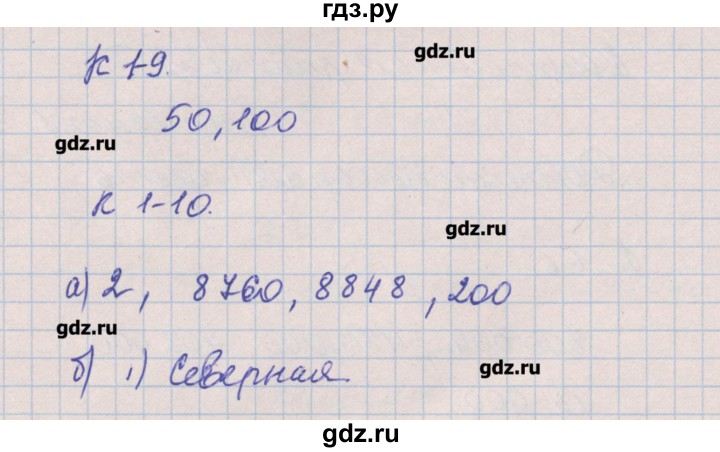 гдз.ру
gdz.ru
К 1-9.
50, 100
gdz.ru
К 1-10.
gdz.ru
а) 2, 8760, 8848, 200
gdz.ru
б) 1) Северная
gdz.ru
gdz.ru